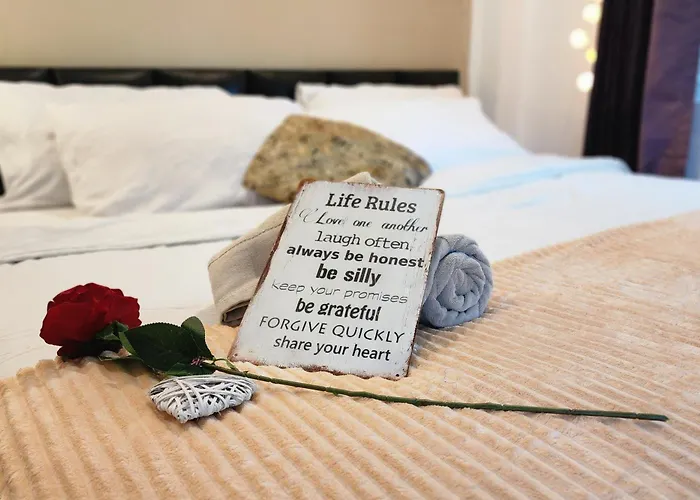 Life Rules
Love one another
laugh often
always be honest
be silly
keep your promises
be grateful
FORGIVE QUICKLY
share your heart